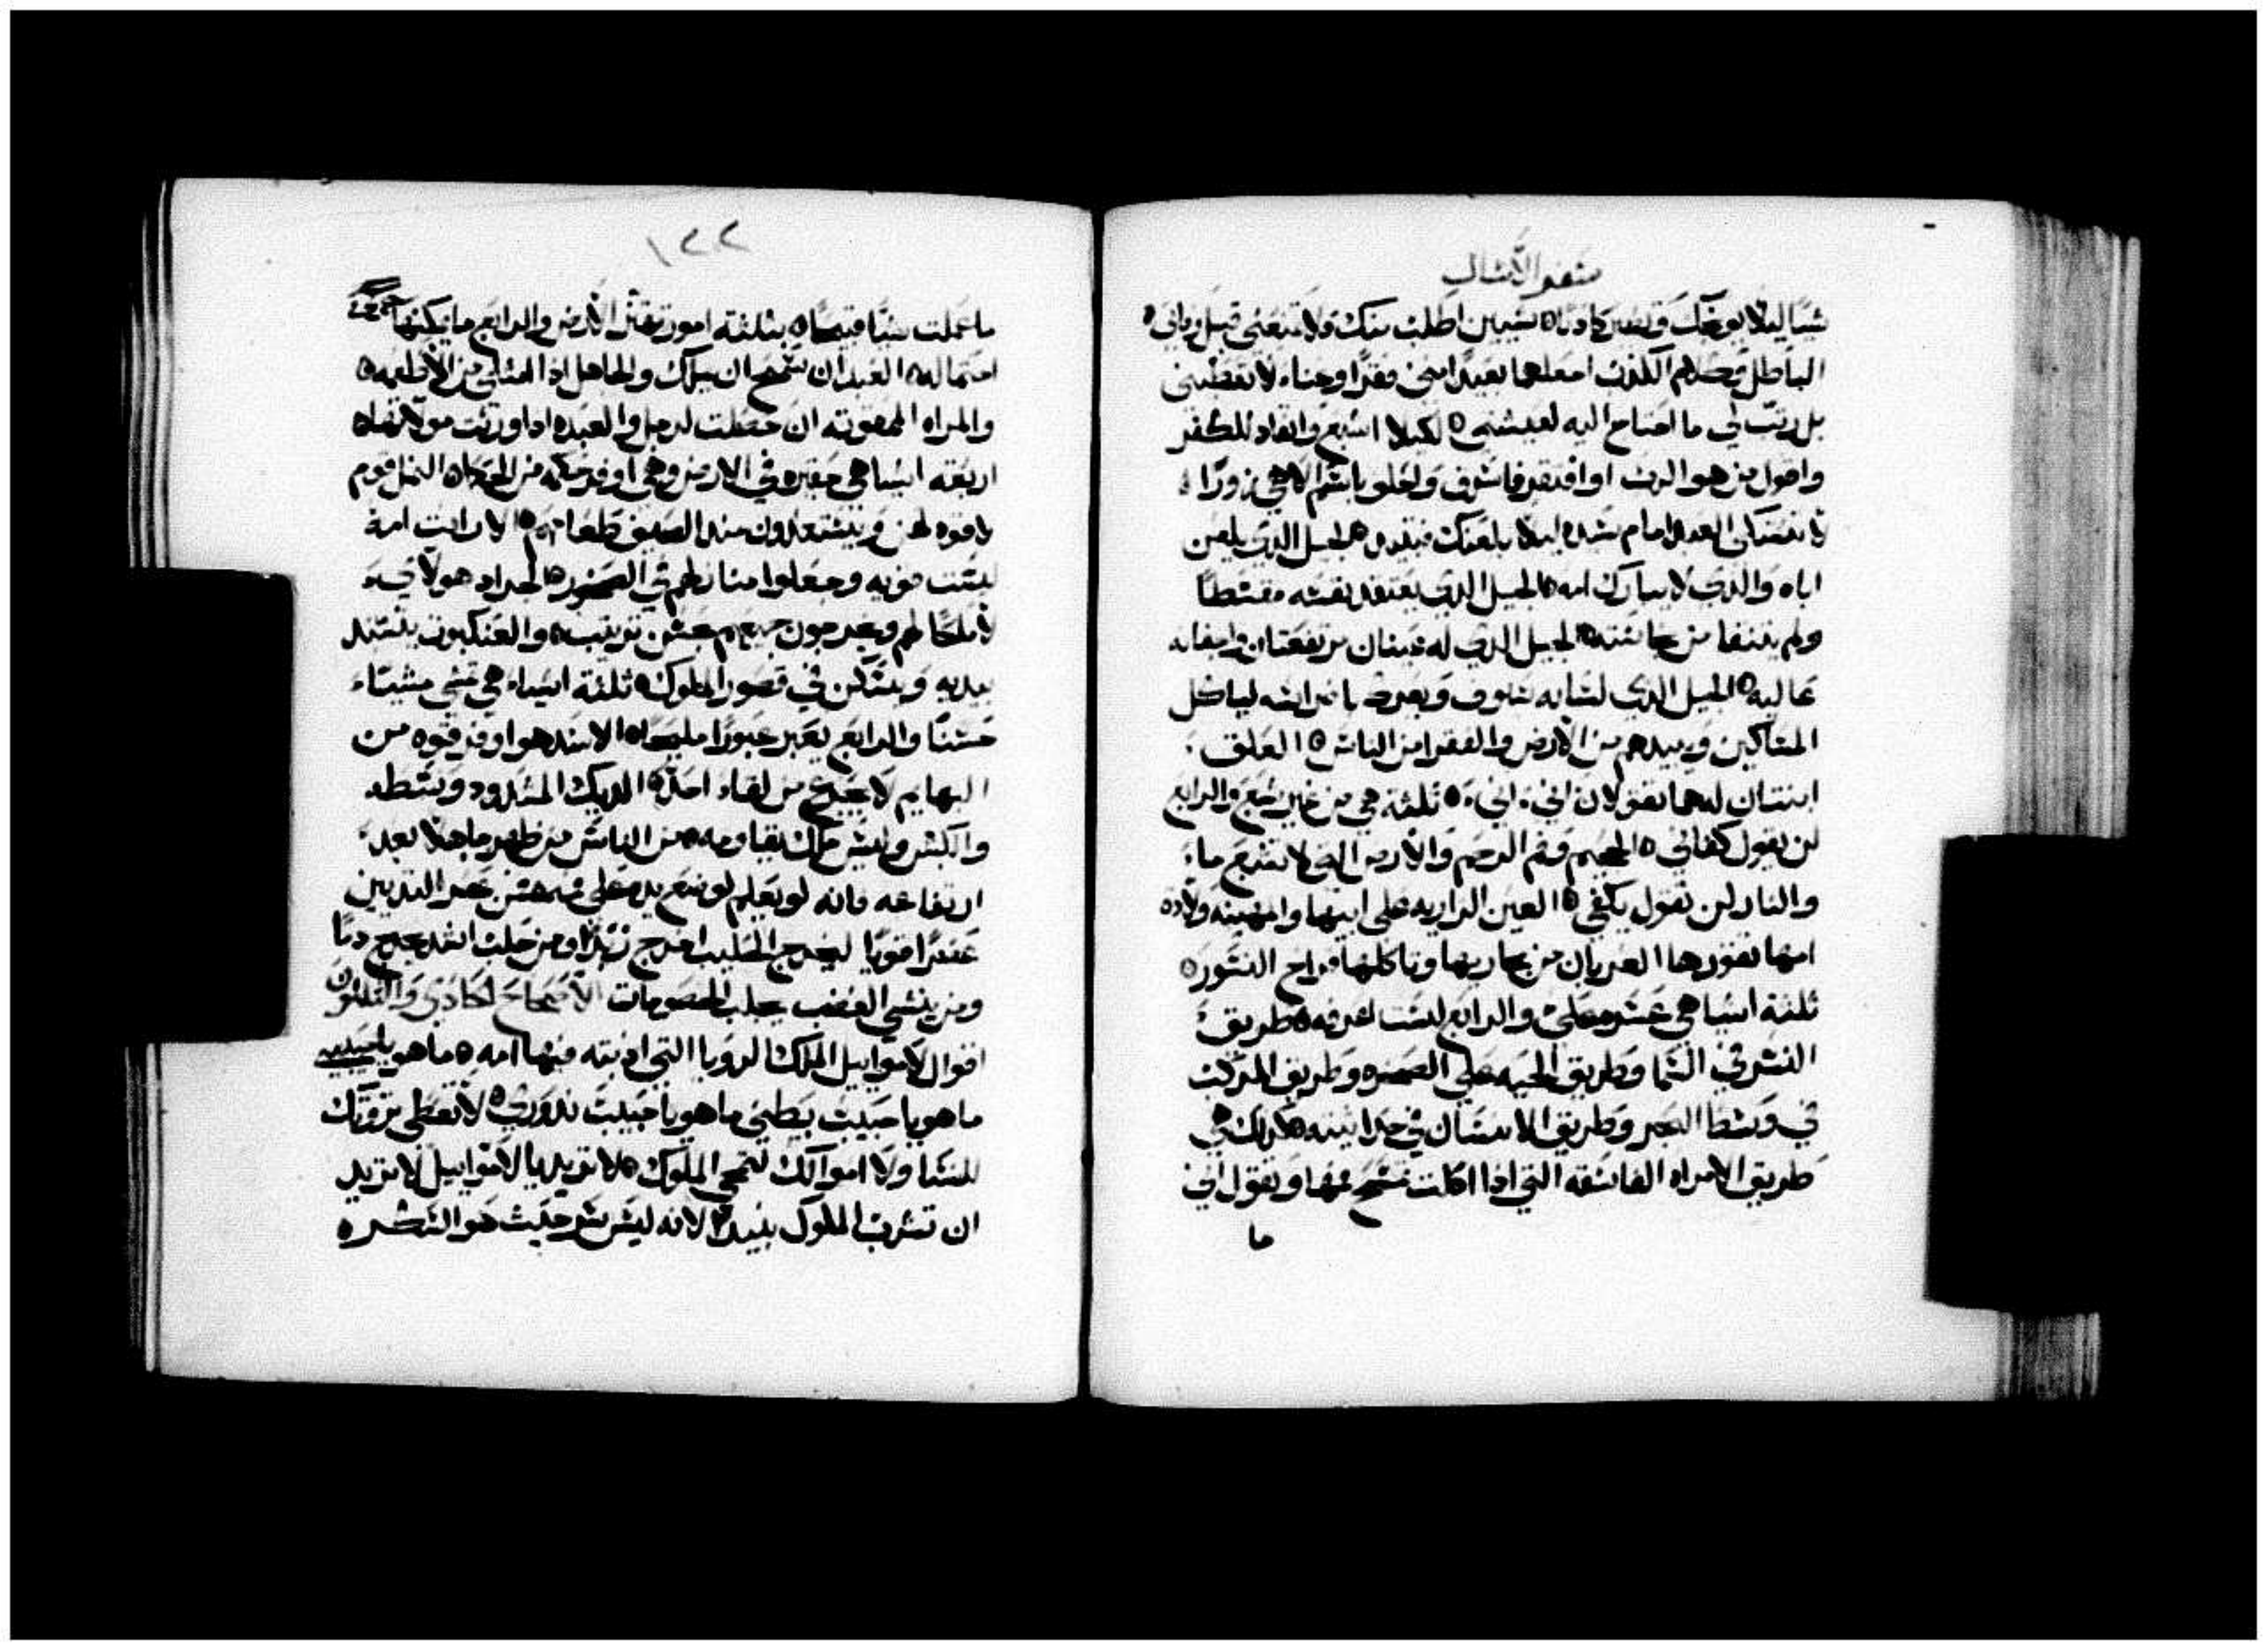 سفر الامثال
شيا ليلا يوبخك وتصير كادبا ه شيين اطلب منك ولا تمنعني قبل وفاتي ه
الباطل وكلام الكذب امعلهما بعيدا مني فقرا وغناء لا تعطيني
بل رتب لي ما احتاج اليه لعيشتي ه لكيلا اشبع وانقاد للكفر
واقول من هو الرب او افتقر فاسرق واحلف باسم الاهي زورا ه
لا تشكي العبد امام سيده ليلا يلعنك فتقع ه الجيل الدي يلعن
اباه والدي لا يبارك امه ه الجيل الدي يعتقد نفسه مقسطا
ولم ينتفا من نجاسته ه الجيل الدي له عينان مرتفعتان واجفانه
عاليه ه الجيل الدي اسنانه سيوف ويعرض باضراسه لياكل
المساكين ويبيدهم من الارض والفقرا من الناس ه العلق
ابنتان لهما تقولان اتي اتي ه ثلثة هي من غير شبع والرابع
لن يقول كفاني ه الجحيم وفم الرحم والارض التي لا تشبع ماء
والنار لن تقول يكفي ه العين الزاريه على ابيها والمهينه ولادة
امها تقورها الغربان من مجاريها وتاكلها فراخ النسور ه
ثلثة اشيا هي عسره علي والرابع لست اعرفه ه طريق
النسر في السما وطريق الحيه علي الصخره وطريق المركب
في وسط البحر وطريق الانسان في حداثيته ه كدلك هي
طريق الامراه الفاسقه التي ادا اكلت تمسح فمها وتقول اني
ما
١٢٢
ما عملت شيا قبيحا ه بثلثة امور تقلق الارض والرابع ما يمكنها
احتماله ه العبد ان سمح ان يملك والجاهل ادا امتلي من الاطعمه ه
والمراه الممقوته ان حصلت لرجل والعبده ادا ورثت مولاتها ه
اربعة اشيا هي حقيره في الارض وهي اوفر حكمه من الحكما ه النمل قوم
لا قوه لهم ويستعدون مند الصيف طعامهم ه الارانب امة
ليست قويه وجعلوا منازلهم في الصخور ه الجراد هولاي
لا ملكا لهم ويخرجون جميعهم بحسن ترتيب ه والعنكبوت يستند
بيديه ويسكن في قصور الملوك ه ثلثة اشياء هي تمشي مشيا
حسنا والرابع يعبر عبورا مليحا ه الاسد هو اوفر قوه من
البهايم لا يجزع من لقاء احد ه الديك المشدود وسطه
والكبش وليس ملك يقاومه ه من الناس من ظهر جاهلا بعد
ارتفاعه فانه لو يعلم لوضع يده علي فمه ه من عصر الثديين
عصرا قويا ليخرج الحليب اخرج زبدا ومن حلب انفه يخرج دما
ومن ينشي الغضب يجلب الخصومات الاصحاح الحادي والثلثون
اقوال لاموايل الملك الرويا التي ادبته فيها امه ه ما هو يا حبيبي
ما هو يا حبيب بطني ما هو يا حبيب ندوري ه لا تعطي ثروتك
للنسا ولا اموالك لتمحي الملوك ه لا تريد يا لاموايل لا تريد
ان تشرب الملوك نبيدا لانه ليس سر حيث هو السكر ه